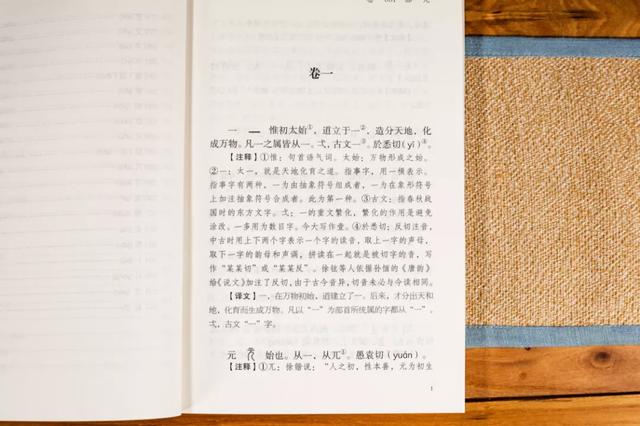 卷一
一 惟初太始①，道立于一②，造分天地，化
成万物。凡一之属皆从一。弌，古文一③。於悉切(yī)④。
【注释】①惟：句首语气词。太始：万物形成之始。
②一：大一，就是天地化育之道。指事字，用一横表示。
指事字有两种，一为由抽象符号组成者，一为在象形符号
上加注抽象符号合成者。此为第一种。③古文：指春秋战
国时的东方文字。弌：一的重文繁化，繁化的作用是避免
涂改。一多用为数目字。今大写作壹。④於悉切：反切注音，
中古时用上下两个字表示一个字的读音，取上一字的声母，
取下一字的韵母和声调，拼读在一起就是被切字的音，写
作“某某切”或“某某反”。徐铉等人依据孙愐的《唐韵》
给《说文》加注了反切，由于古今音异，切音未必与今读相同。
【译文】一，在万物初始，道建立了一。后来，才分出天和
地，化育而生成万物。凡以“一”为部首所统属的字都从“一”。
弌，古文“一”字。
元 始也。从一，从兀①。愚袁切(yuán)。
【注释】①兀：徐锴说：“人之初，性本善，元为初生
1